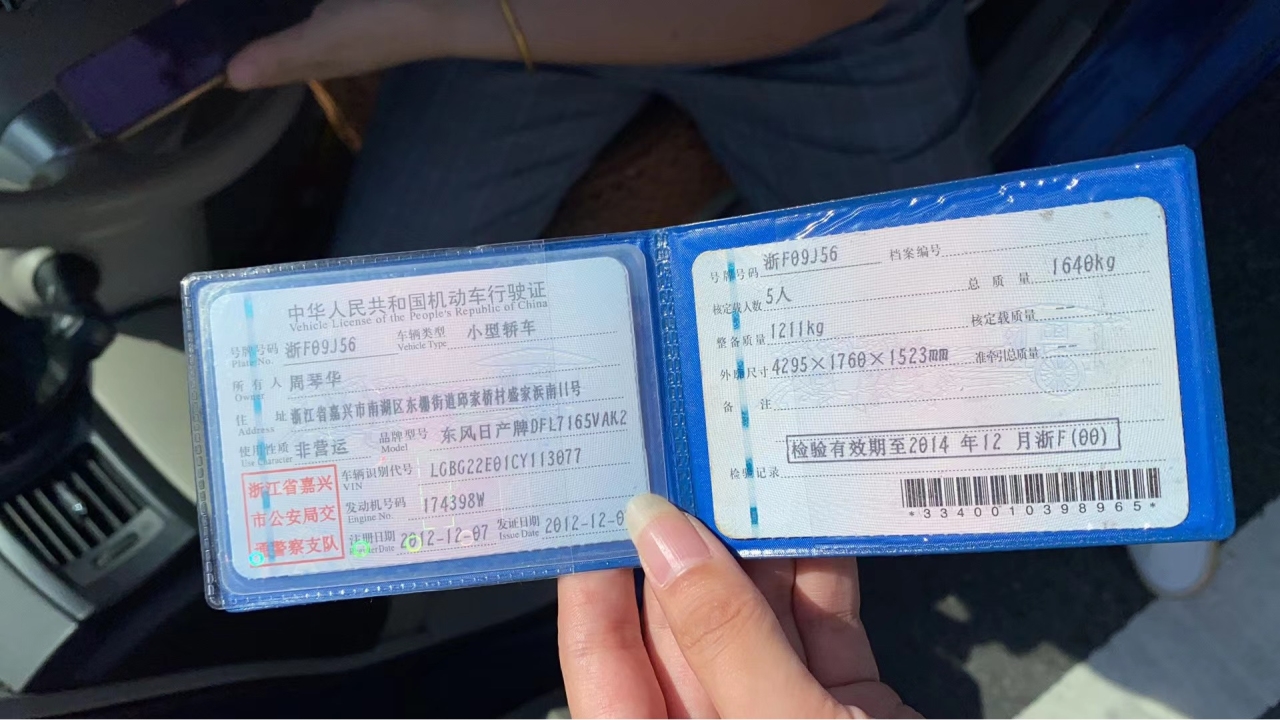 中华人民共和国机动车行驶证
Vehicle License of the People's Republic of China
号牌号码 浙F09J56 车辆类型 小型轿车
Plate No. Vehicle Type
所有人 周琴华
Owner
住址 浙江省嘉兴市南湖区东栅街道邱家桥村盛家浜南11号
Address
使用性质 非营运 品牌型号 东风日产牌DFL7165VAK2
Use Character Model
浙江省嘉兴
市公安局交
通警察支队
车辆识别代号 LGBG22E01CY113077
VIN
发动机号码 174398W
Engine No.
注册日期 2012-12-07 发证日期 2012-12-0
Issue Date
号牌号码 浙F09J56 档案编号
核定载人数 5人 总质量 1640kg
整备质量 1211kg 核定载质量 --
外廓尺寸 4295×1760×1523mm 准牵引总质量 --
备注
检验有效期至2014 年12 月浙F(00)
检验记录
*3340010398965*